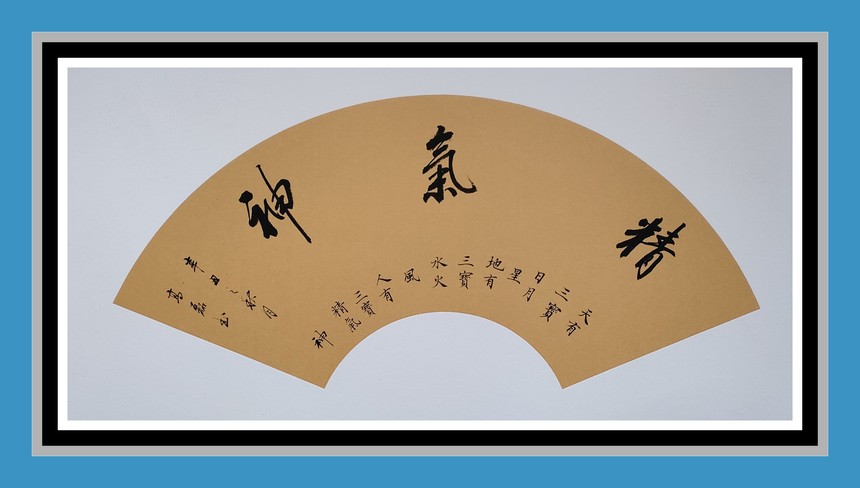 精氣神
天有
三寶
日月
星
地有
三寶
水火
風
人有
三寶
精氣
神
辛丑之秋月
高 书